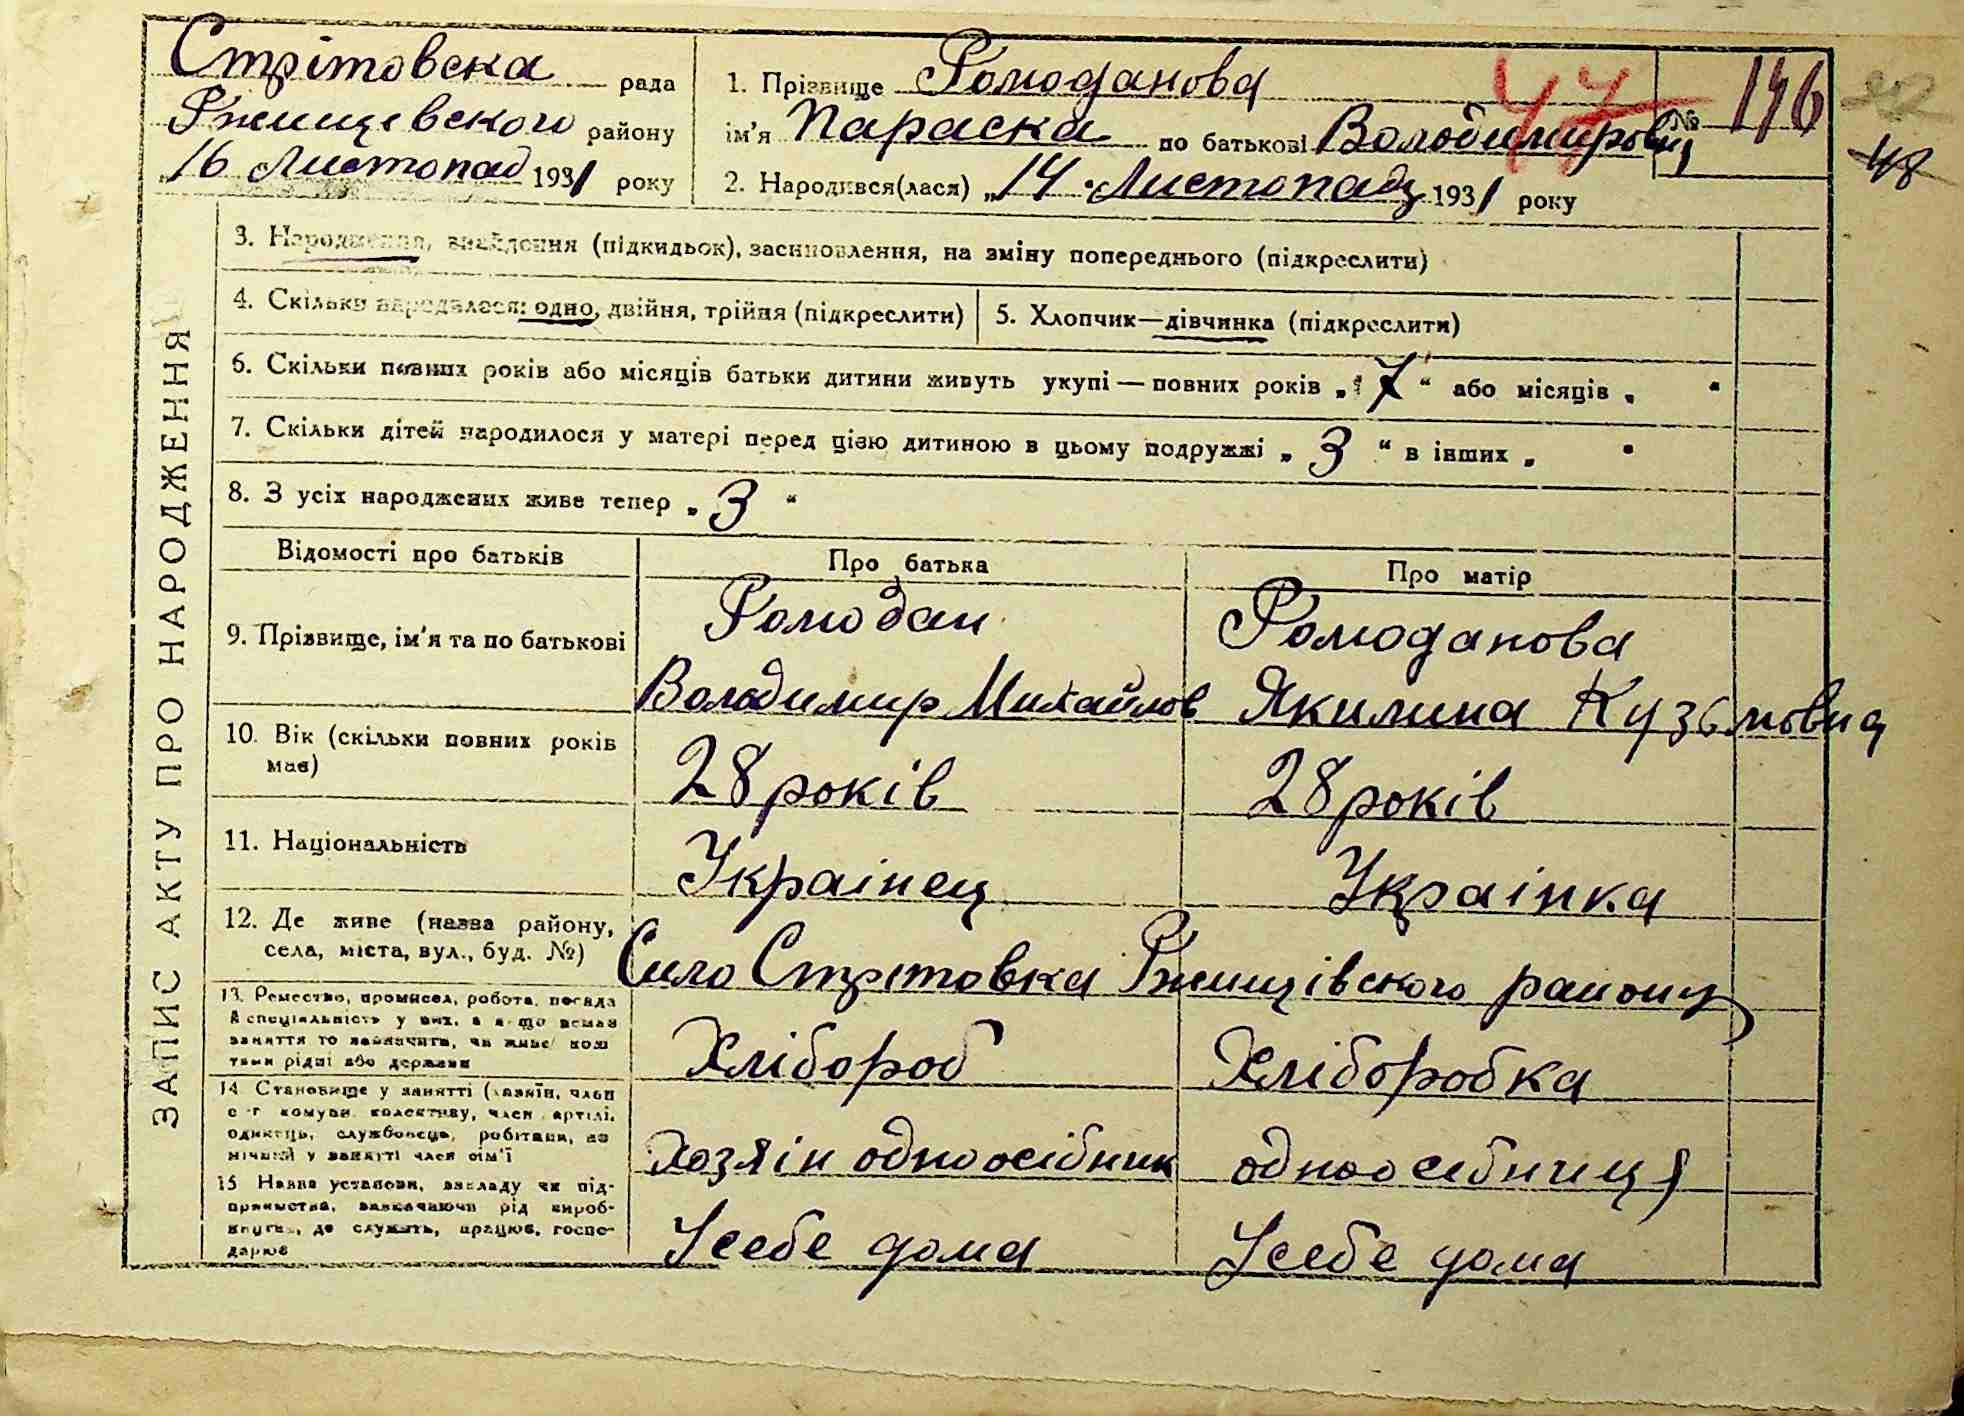 Стрітовска рада
Ржищевского району
„16 Листопад 1931 року
1. Прізвище Ромоданова
ім'я Параска по батькові Володимировна
2. Народився(лася) „14 Листопаду 1931 року
47
№ 146
48
ЗАПИС АКТУ ПРО НАРОДЖЕННЯ
3. Народження, знайдення (підкидьок), засиновлення, на зміну попереднього (підкреслити)
4. Скільки народилося: одно, двійня, трійня (підкреслити)
5. Хлопчик—дівчинка (підкреслити)
6. Скільки повних років або місяців батьки дитини живуть укупі — повних років „7“ або місяців „ “
7. Скільки дітей народилося у матері перед цією дитиною в цьому подружжі „3“ в інших „ “
8. З усіх народжених живе тепер „3“
Відомості про батьків
Про батька
Про матір
9. Прізвище, ім'я та по батькові
Ромодан
Володимир Михайлов
Ромоданова
Якилина Кузьмовна
10. Вік (скільки повних років
має)
28 років
28 років
11. Національність
Украінец
Украінка
12. Де живе (назва району,
села, міста, вул., буд. №)
Село Стрітовка Ржищівского району
13. Ремество, промисел, робота, посада
й спеціяльність у них, а якщо немає
заняття то зазначити, чи живе кош
тами рідні або держави
Хлібороб
Хліборобка
14. Становище у занятті (хазяїн, член
с-г комуни, колективу, член артілі,
одинець, службовець, робітник, по
мічний у занятті член сім'ї
Хозяін одноосібник
одноосебниця
15 Назва установи, закладу чи під-
приємства, зазначаючи рід вироб-
ництва, де служить, працює, госпо-
дарює
У себе дома
У себе дома